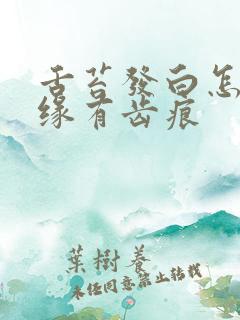 舌苔發白怎
缘有齿痕
葉樹養
未经同意禁止转载